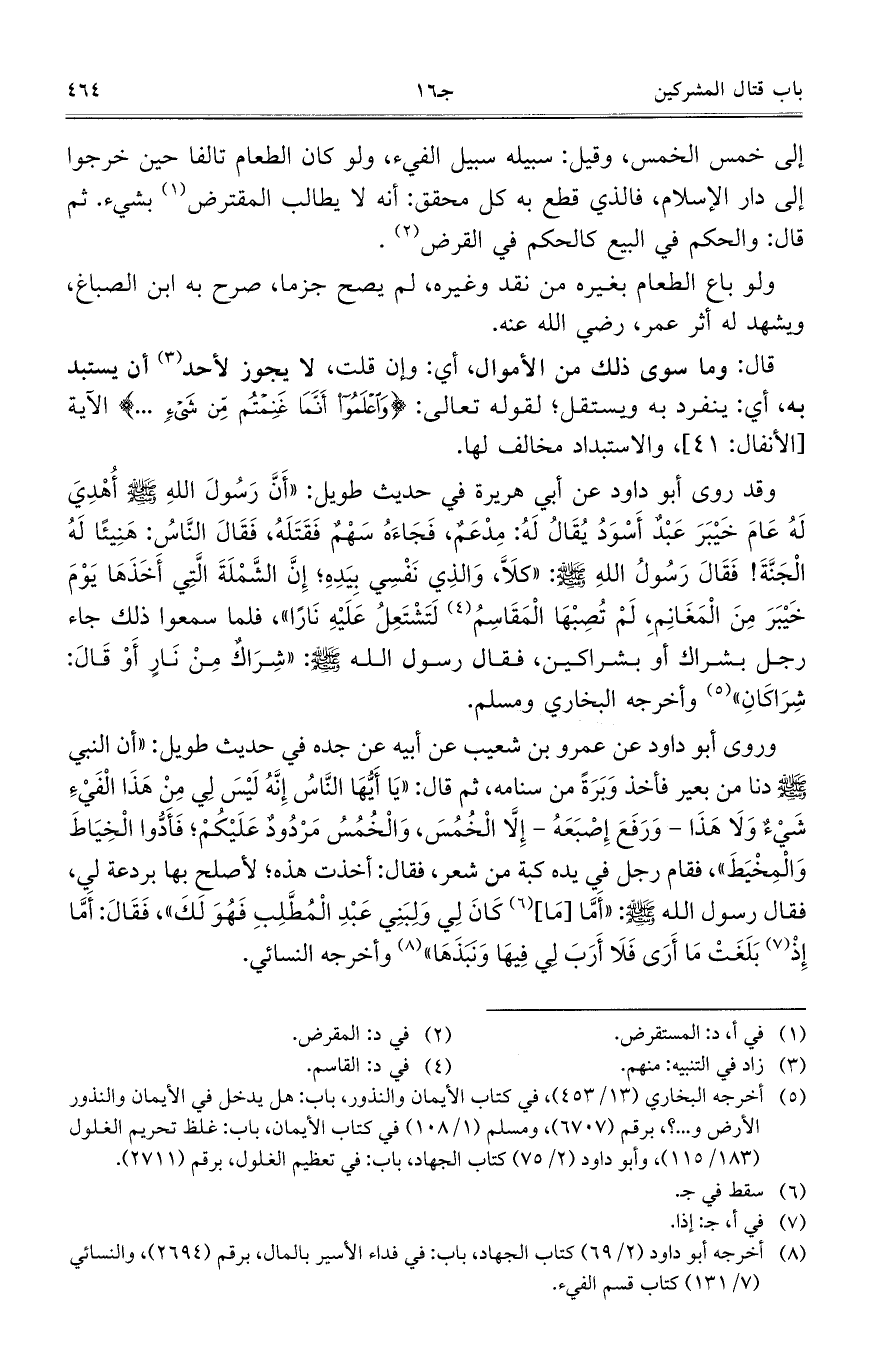 باب قتال المشركين جـ١٦ ٤٦٤
إلى خمس الخمس، وقيل: سبيله سبيل الفيء، ولو كان الطعام تالفا حين خرجوا
إلى دار الإسلام، فالذي قطع به كل محقق: أنه لا يطالب المقترض(١) بشيء. ثم
قال: والحكم في البيع كالحكم في القرض(٢) .
ولو باع الطعام بغيره من نقد وغيره، لم يصح جزما، صرح به ابن الصباغ،
ويشهد له أثر عمر، رضي الله عنه.
قال: وما سوى ذلك من الأموال، أي: وإن قلت، لا يجوز لأحد(٣) أن يستبد
به، أي: ينفرد به ويستقل؛ لقوله تعالى: ﴿وَٱعۡلَمُوٓاْ أَنَّمَا غَنِمۡتُم مِّن شَيۡءٖ ...﴾ الآية
[الأنفال: ٤١]، والاستبداد مخالف لها.
وقد روى أبو داود عن أبي هريرة في حديث طويل: «أَنَّ رَسُولَ اللهِ ﷺ أُهْدِيَ
لَهُ عَامَ خَيْبَرَ عَبْدٌ أَسْوَدُ يُقَالُ لَهُ: مِدْعَمٌ، فَجَاءَهُ سَهْمٌ فَقَتَلَهُ، فَقَالَ النَّاسُ: هَنِيئًا لَهُ
الْجَنَّةَ! فَقَالَ رَسُولُ اللهِ ﷺ: «كَلاَّ، وَالذِي نَفْسِي بِيَدِهِ؛ إِنَّ الشَّمْلَةَ الَّتِي أَخَذَهَا يَوْمَ
خَيْبَرَ مِنَ الْمَغَانِمِ، لَمْ تُصِبْهَا الْمَقَاسِمُ(٤) لَتَشْتَعِلُ عَلَيْهِ نَارًا»، فلما سمعوا ذلك جاء
رجل بشراك أو بشراكين، فقال رسول الله ﷺ: «شِرَاكٌ مِنْ نَارٍ أَوْ قَالَ:
شِرَاكَانِ»(٥) وأخرجه البخاري ومسلم.
وروى أبو داود عن عمرو بن شعيب عن أبيه عن جده في حديث طويل: «أن النبي
ﷺ دنا من بعير فأخذ وَبَرَةً من سنامه، ثم قال: «يَا أَيُّهَا النَّاسُ إِنَّهُ لَيْسَ لِي مِنْ هَذَا الْفَيْءِ
شَيْءٌ وَلَا هَذَا - وَرَفَعَ إِصْبَعَهُ - إِلَّا الْخُمُسَ، وَالْخُمُسُ مَرْدُودٌ عَلَيْكُمْ؛ فَأَدُّوا الْخِيَاطَ
وَالْمِخْيَطَ»، فقام رجل في يده كبة من شعر، فقال: أخذت هذه؛ لأصلح بها بردعة لي،
فقال رسول الله ﷺ: «أَمَّا [مَا](٦) كَانَ لِي وَلِبَنِي عَبْدِ الْمُطَّلِبِ فَهُوَ لَكَ»، فَقَالَ: أَمَّا
إِذْ(٧) بَلَغَتْ مَا أَرَى فَلَا أَرَبَ لِي فِيهَا وَنَبَذَهَا»(٨) وأخرجه النسائي.
(١) في أ، د: المستقرض. (٢) في د: المقرض.
(٣) زاد في التنبيه: منهم. (٤) في د: القاسم.
(٥) أخرجه البخاري (١٣/ ٤٥٣)، في كتاب الأيمان والنذور، باب: هل يدخل في الأيمان والنذور
الأرض و...؟، برقم (٦٧٠٧)، ومسلم (١/ ١٠٨) في كتاب الأيمان، باب: غلظ تحريم الغلول
(١٨٣/ ١١٥)، وأبو داود (٢/ ٧٥) كتاب الجهاد، باب: في تعظيم الغلول، برقم (٢٧١١).
(٦) سقط في جـ.
(٧) في أ، جـ: إذا.
(٨) أخرجه أبو داود (٢/ ٦٩) كتاب الجهاد، باب: في فداء الأسير بالمال، برقم (٢٦٩٤)، والنسائي
(٧/ ١٣١) كتاب قسم الفيء.